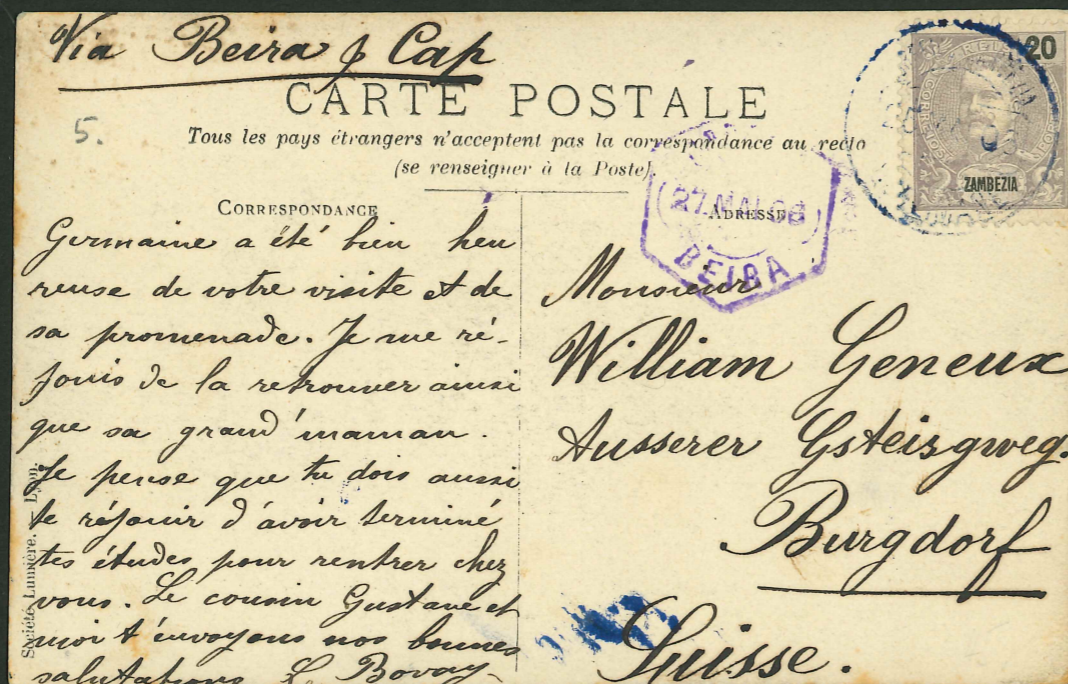 Via Beira & Cap
CARTE POSTALE
5.
Tous les pays étrangers n'acceptent pas la correspondance au recto
(se renseigner à la Poste).
20
CORREIOS
ZAMBEZIA
27 MAI 06
BEIRA
CORRESPONDANCE
Germaine a été bien heu
reuse de votre visite et de
sa promenade. Je me ré-
jouis de la retrouver ainsi
que sa grand'maman.
Je pense que tu dois aussi
te réjouir d'avoir terminé
tes études pour rentrer chez
vous. Le cousin Gustave et
moi t'envoyons nos bonnes
salutations L. Bovay
ADRESSE
Monsieur
William Geneux
Ausserer Gsteigweg.
Burgdorf
Suisse.
Société Lumière. - Lyon.